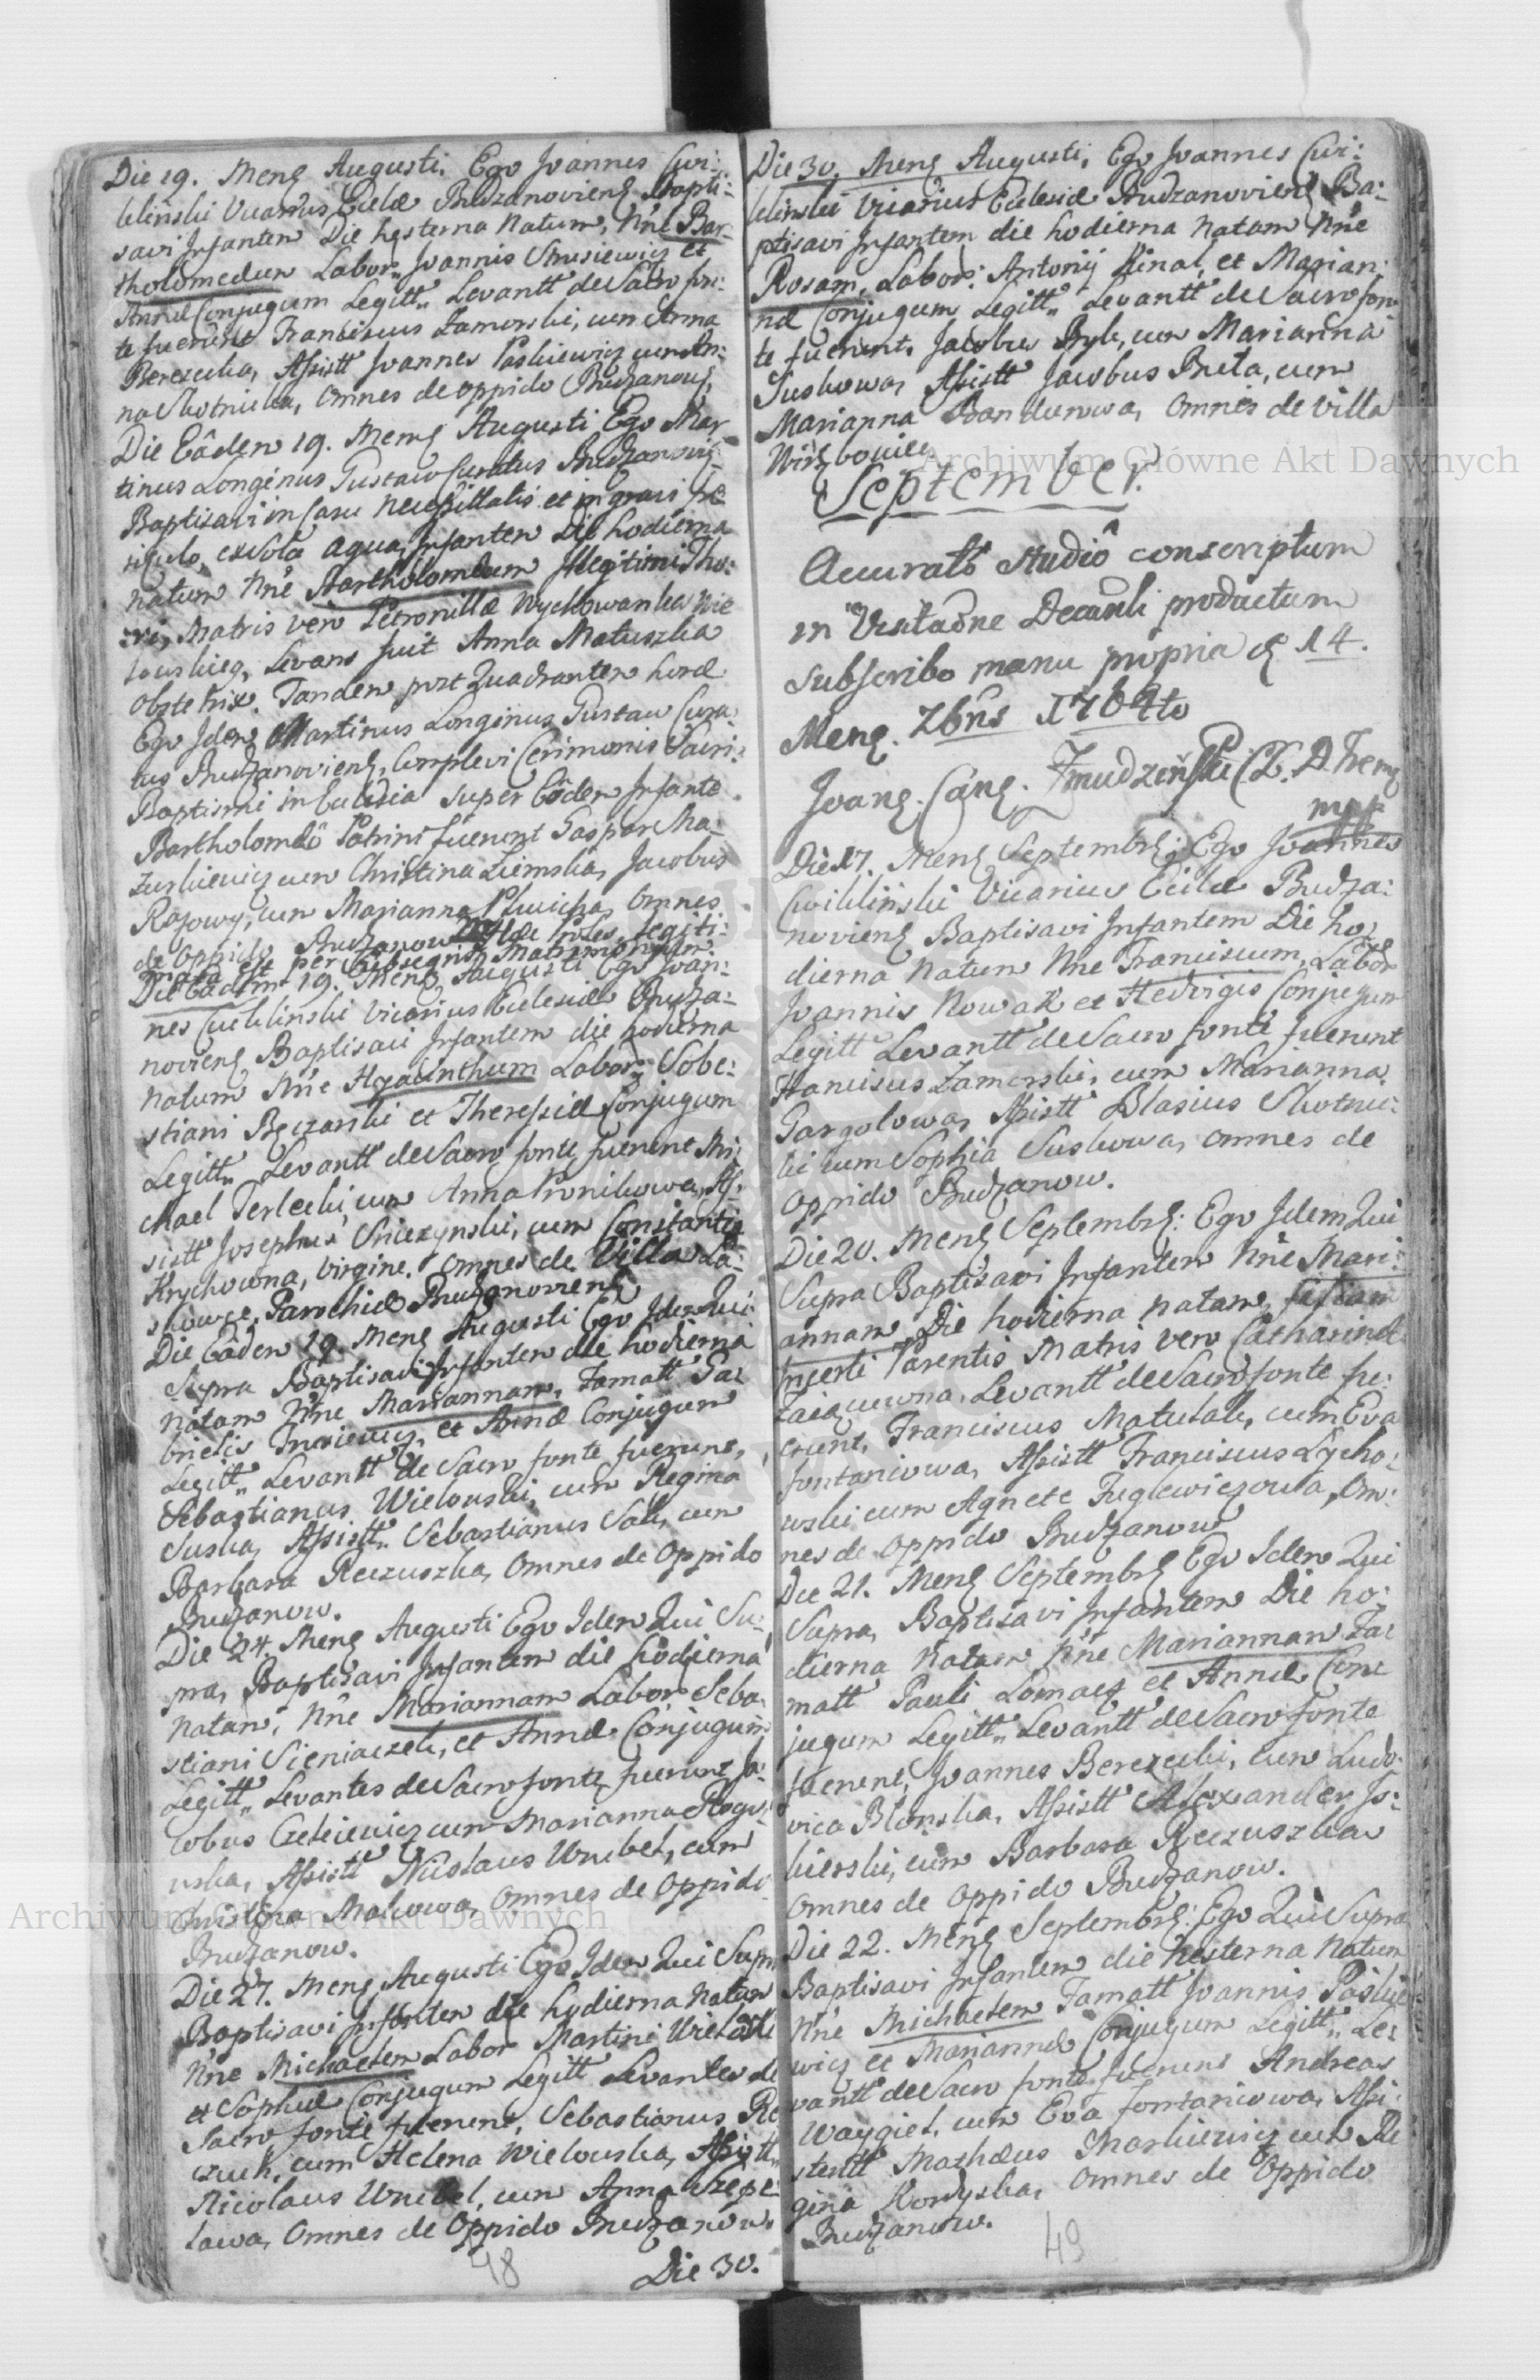 Die 19. Mens Augusti. Ego Joannes Cwi:
klinski Vicarius Eccłæ Budzanoviens Bapti:
savi Infantem Die hesterna Natum, Nne Bar
tholomæum Labor. Joannis Strusiewicz et
Annæ Conjugum Legitt. Levantt de Sacro fon:
te fuerunt Franciscus Zamorski, cum Anna
Berezecka, Assistt Joannes Paskiewicz cum An:
na Skotnicka, Omnes de oppido Budzanow.
Die Eâdem 19. Mens Augusti Ego Mar
tinus Longinus Gustaw Curatus Budzanovis
Baptisavi in Casu necessitatis et in gravi pe
riculo, ex sola aqua Infantem Die hodierna
natum Nne Bartholomæum Illegitimi Tho:
ri, Matris vero Petronillæ Wychowanka Wie
Levans fuit Anna Matuszka
Obstetrix. Tandem post Quadrantem horæ
Ego Idem Martinus Longinus Gustaw Cura
tus Budzanoviens, Complevi Cerimonis Sacri
Baptismi in Ecclesia super Eôdem Infante
Bartholomæô Patrini fuerunt Gaspar Ma:
zurkiewicz cum Christina Ziemska, Jacobus
Rozowy, cum Marianna Omnes
de Oppido Budzanow Proles Legiti:
mata est per subsequens Matrimonium
Die Eâdem 19. Mens Augusti Ego Joan:
nes Cwiklinski Vicarius Ecclesiæ Budza:
noviens Baptisavi Infantem die hodierna
Natum Nne Hyacinthum Labor. Seba:
stiani Beczarski et Theressiæ Conjugum
Legitt. Levantt de Sacro fonte fuerunt Mi:
chael Terlecki cum Anna Pronikowa, As:
sistt Josephus cum Constantia
Krychowna, Virgine. Omnes de Villa La:
skowce, Parochiæ Budzanoviens
Die Eâdem 19. Mens Augusti Ego Idem Qui
Supra Baptisavi Infantem die hodierna
Natam Nne Mariannam. Famatt Ga:
brielis et Annæ Conjugum
Legitt. Levantt de Sacro fonte fuerunt,
Sebastianus Wielowski, cum Regina
Suska, Assistt. Sebastianus Sak, cum
Barbara Reczuszka, Omnes de Oppido
Budzanow.
Die 24. Mens Augusti Ego Idem Qui Su:
pra, Baptisavi Infantem die hodierna
Natam, Nne Mariannam Labor Seba:
stiani Sieniaczek, et Annæ Conjugum
Legitt. Levantes de Sacro fonte fuerunt Ja:
cobus cum Marianna Rogo:
wska, Assistt Nicolaus Wrubel, cum
Christina Makowa, Omnes de Oppido
Budzanow.
Die 27. Mens Augusti Ego Idem Qui Supra
Baptisavi Infantem die hodierna Natum
Nne Michaelem Labor Martini
et Sophiæ Conjugum Legitt Levantes de
Sacro fonte fuerunt, Sebastianus Re
czuch, cum Helena Wielowska, Assistt.
Nicolaus Wrubel, cum Anna
Omnes de Oppido Budzanow.
48 Die 30.
Die 30. Mens Augusti, Ego Joannes Cwi:
klinski Vicarius Ecclesiæ Budzanoviens Ba:
ptisavi Infantem die hodierna Natam Nne
Rosam, Labor: Antonij Kinal, et Marian:
næ Conjugum Legitt. Levantt de Sacro fon
te fuerunt, Jacobus Bryk, cum Marianna
Suskowa, Assistt Jacobus Buta, cum
Marianna Bandurowa, Omnes de Villa
Wirzbowiec
September.
Accuratô studiô conscriptum
in Visitaone Decanli productum
subscribo manu propria d 14.
Mens. 7bris 1764to
Joanes. Cans. Zmudzenski C. L. D. Trems
mpp
Die 17. Mens Septembrs: Ego Joannes
Cwiklinski Vicarius Eccłæ Budza:
noviens Baptisavi Infantem Die ho:
dierna Natum Nne Franciscum, Labor
Joannis Nowak et Hedvigis Conjugum
Legitt Levantt de Sacro fonte fuerunt
Franciscus Zamorski, cum Marianna
Gargolowa, Assistt Blasius Skotnic:
ki cum Sophia Suskowa, omnes de
Oppido Budzanow.
Die 20. Mens Septembrs: Ego Idem Qui
Supra Baptisavi Infantem Nne Mari:
annam Die hodierna Natam, filiam
Incerti Parentis Matris vero Catharinæ
Levantt de Sacro fonte fu:
erunt, Franciscus Matulak, cum Eva
Fontaniowa, Assistt Franciscus Lycho:
wski cum Agnete Om:
nes de Oppido Budzanow
Die 21. Mens Septembrs Ego Idem Qui
Supra, Baptisavi Infantem Die ho:
dierna Natam Nne Mariannam Fa:
matt Pauli Lomacz et Annæ Con:
jugum Legitt. Levantt de Sacro fonte
fuerunt, Joannes Berezecki, cum Ludo:
vica Blonska, Assistt Alexander Jo:
kierski, cum Barbara Reczuszka
Omnes de Oppido Budzanow.
Die 22. Mens Septembrs: Ego Qui Supra
Baptisavi Infantem die hesterna Natum
Nne Michaelem Famatt Joannis Paskie
wicz et Mariannæ Conjugum Legitt. Le:
vantt de Sacro fonte fuerunt Andreas
Waygiel, cum Eva Fontaniowa, Assi:
stentt Mathæus Markiewicz cum Re
gina Kordyska, Omnes de Oppido
Budzanow.
49
Archiwum Główne Akt Dawnych
Archiwum Główne Akt Dawnych